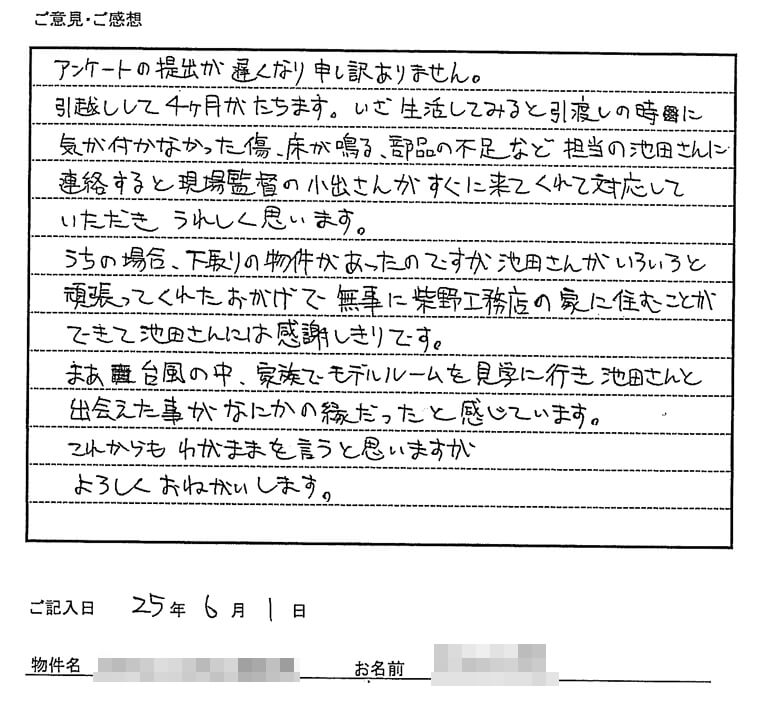 ご意見・ご感想
アンケートの提出が遅くなり申し訳ありません。
引越しして4ヶ月がたちます。いざ生活してみると引渡しの時に
気が付かなかった傷、床が鳴る、部品の不足など担当の池田さんに
連絡すると現場監督の小出さんがすぐに来てくれて対応して
いただきうれしく思います。
うちの場合、下取りの物件があったのですが池田さんがいろいろと
頑張ってくれたおかげで無事に柴野工務店の家に住むことが
できて池田さんには感謝しきりです。
まあ台風の中、家族でモデルルームを見学に行き池田さんと
出会えた事がなにかの縁だったと感じています。
これからもわがままを言うと思いますが
よろしくおねがいします。
ご記入日 25年6月1日
物件名 お名前